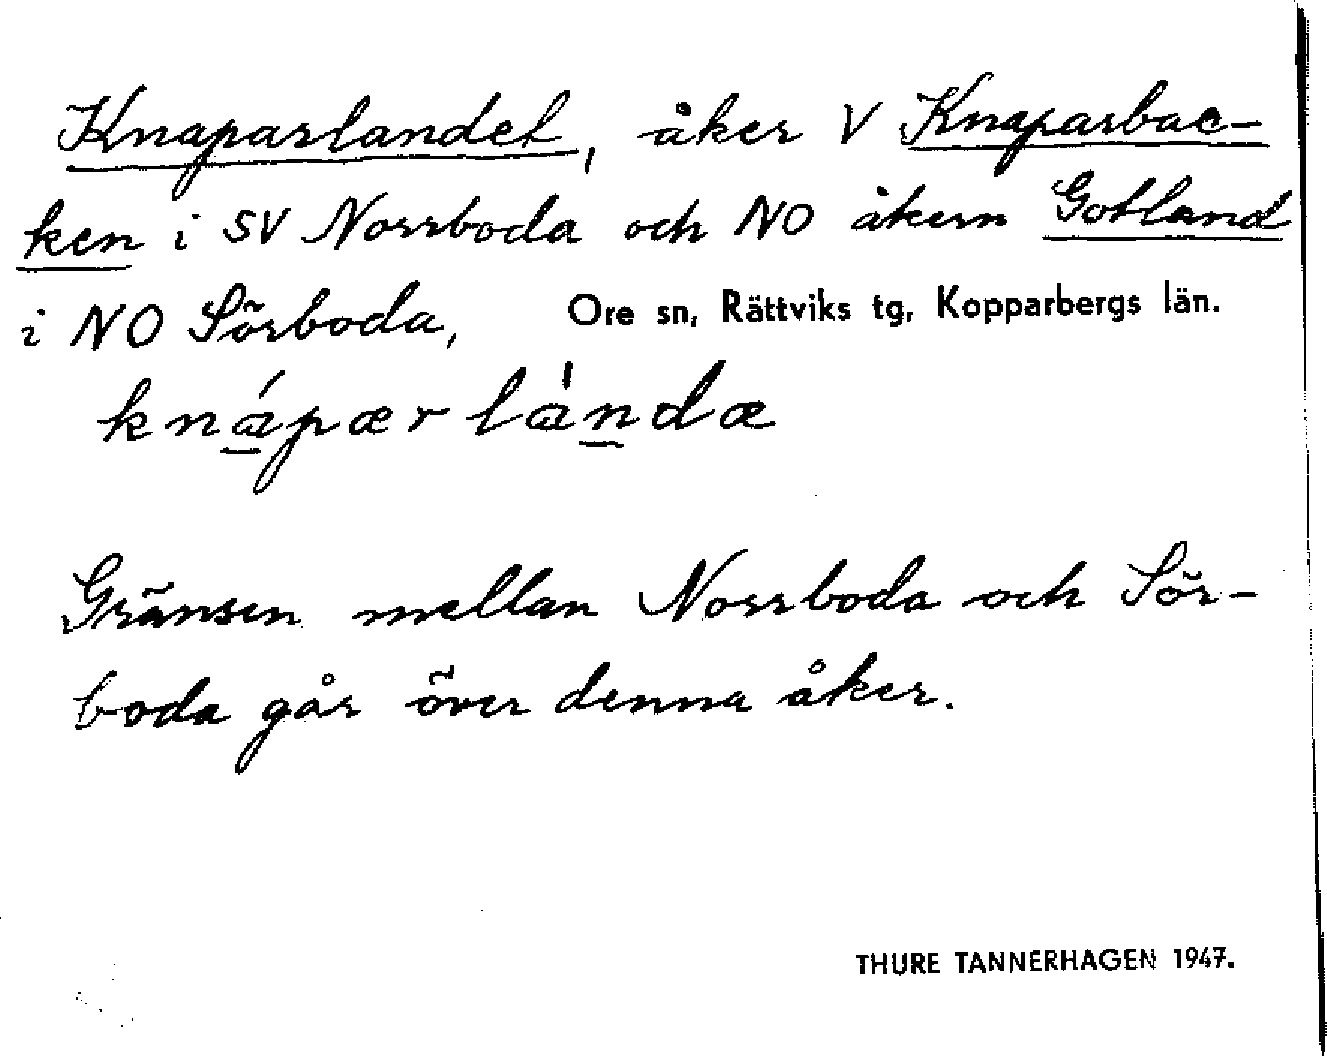 Knaparlandet, åker V Knaparbac-
ken i SV Norrboda och NO åkern Gotland
i NO Sörboda, Ore sn, Rättviks tg, Kopparbergs län.
knápær làndæ
Gränsen mellan Norrboda och Sör-
boda går över denna åker.
THURE TANNERHAGEN 1947.